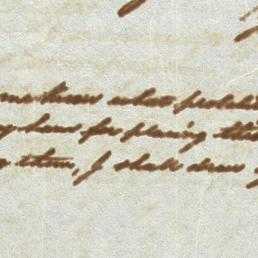 me know what probabi
have for placing this
them, I shall draw